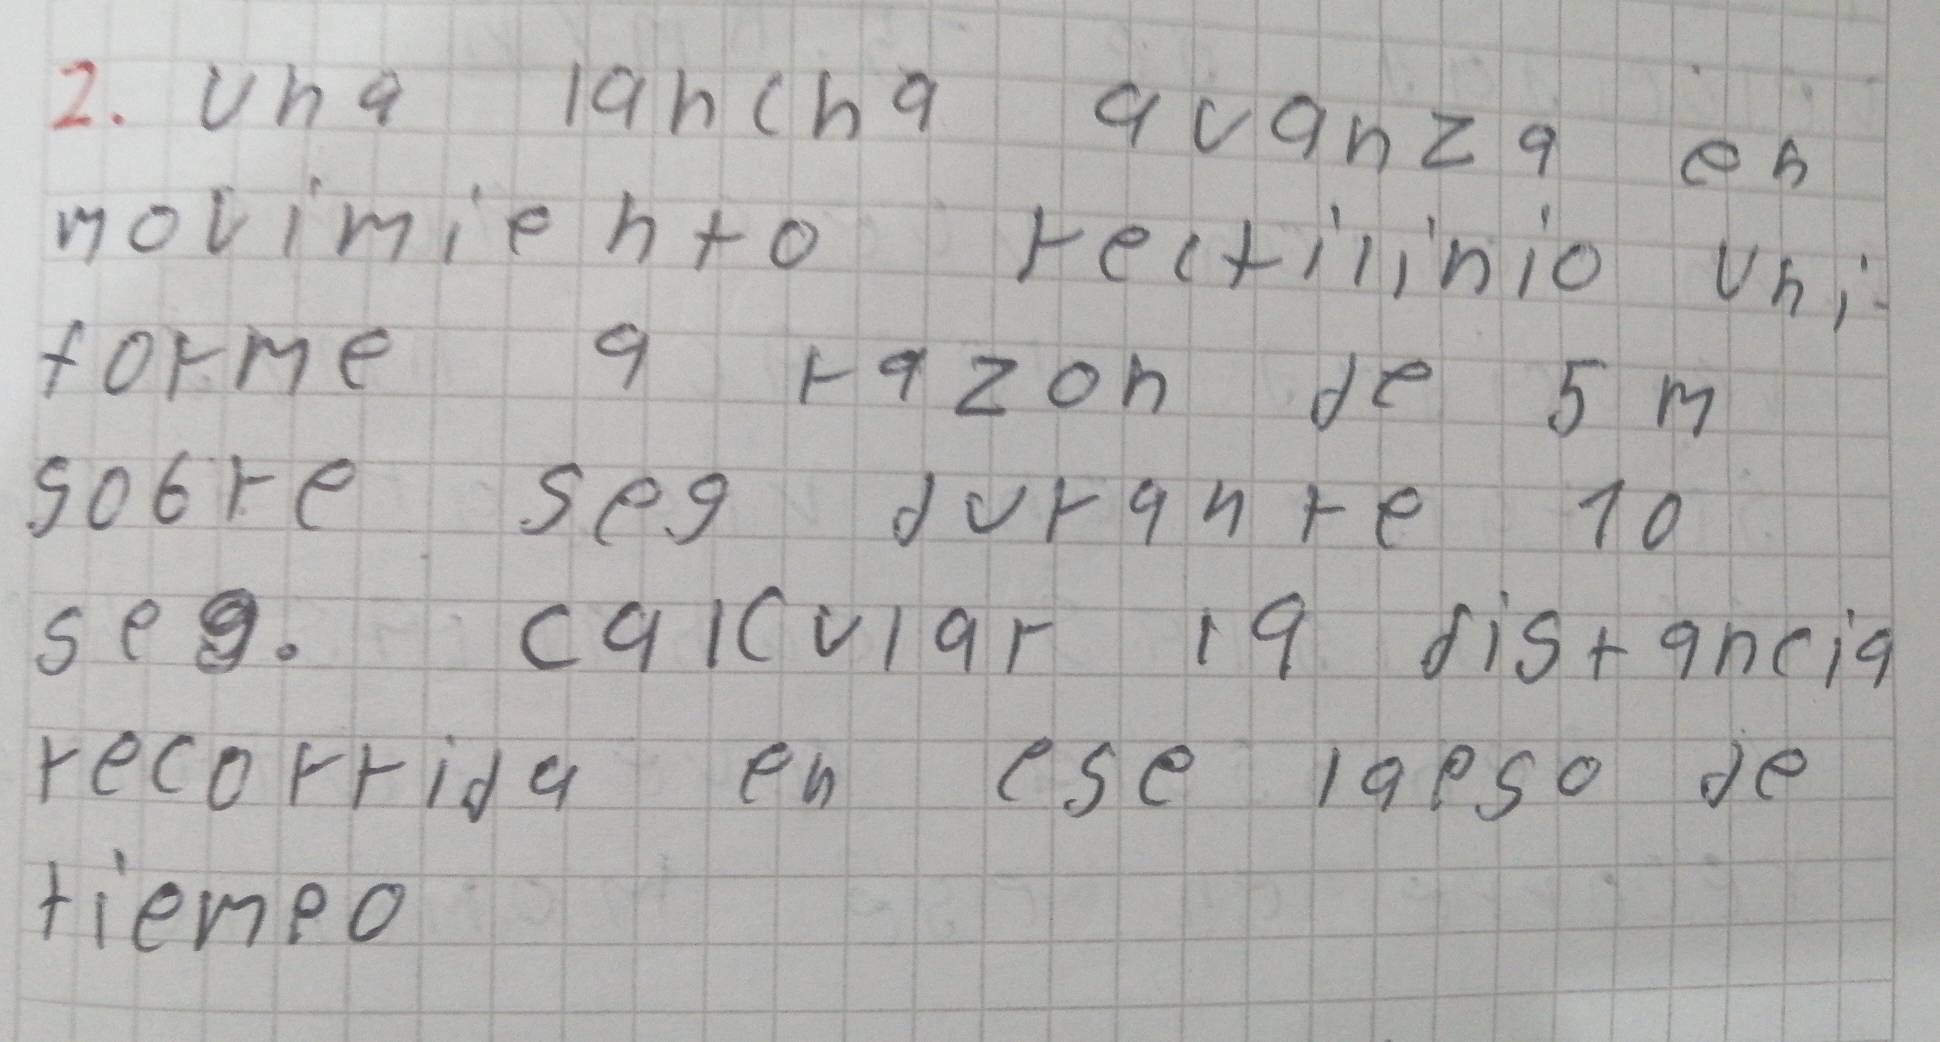 2. Una lancha avanza en
movimiento rectilinio uni-
forme a razon de 5 m
sobre seg durante 10
seg. calcular la distancia
recorrida en ese lapso de
tiempo